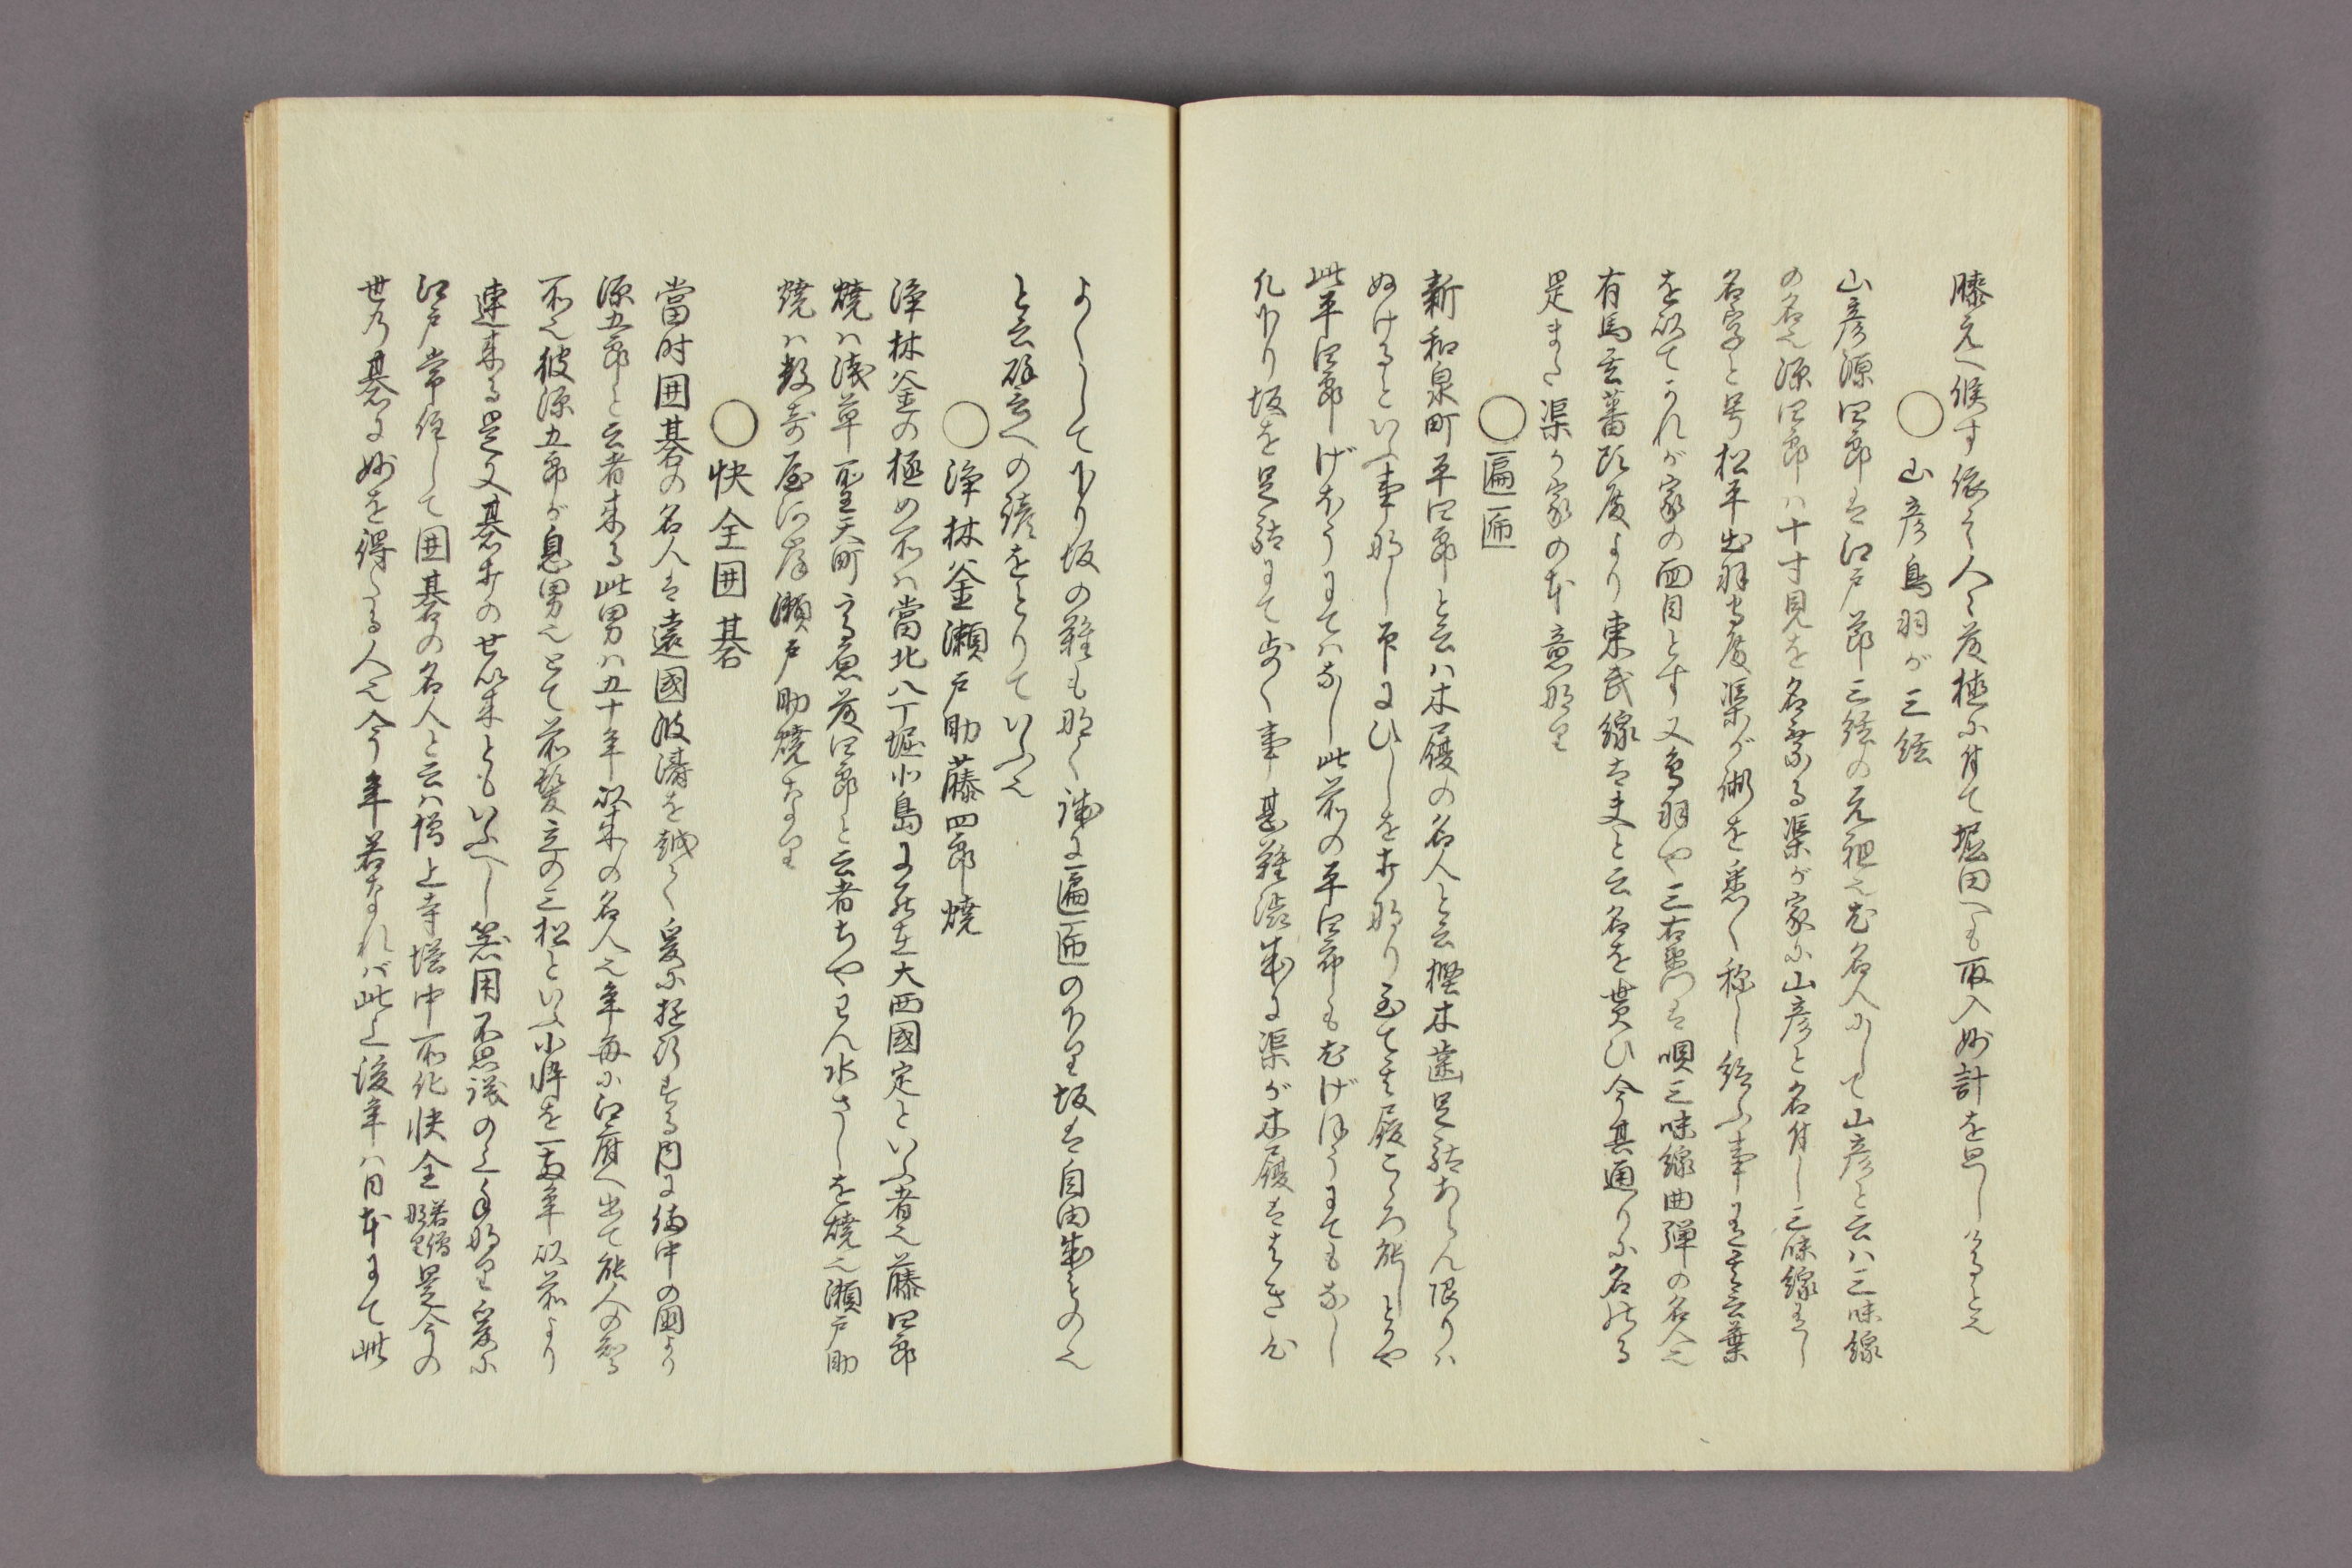 膝元へ候す依之人々発極小身て堀田へも取入妙計を思しけるとそ
○山彦鳥羽が三絃
山彦源四郎は江戸節三絃の元祖也尤名人にして山彦と云ハ三味線
の名也源四郎ハ十寸見を名乗る渠が家に山彦と名付し三味線有し
名字と号松平出羽守殿渠が術を悉く称し給ふ事有其言葉
を以てこれが家の面目とす又鳥羽や三右衛門は唄三味線曲弾の名人也
有馬玄蕃頭殿より東武線は夫と云名を貰ひ今其通りに名のる
是また渠が家の本意那り
○匾匜
新和泉町平四郎と云ハ木履の名人と云樫木歯足結あらん限りハ
ぬけるといふ事那し下にひしを打那り至て履こゝろ能しとかや
此平四郎げほうにてハなし此前の平四郎も尤げほうにてもなし
凡下り坂を足結にて歩く事甚難渋成に渠が木履をはき尤
よくして下り坂の難も那く誠に匾匜の下り坂は自由成もの也
と云 への績をとりていふ也
○浄林釜瀬戸助藤四郎焼
浄林釜の極め所ハ當北八丁堀小島に大西國定といふ者也藤四郎
焼ハ浅草聖天町高原藤四郎と云者ちやわん水さしを焼也瀬戸助
焼ハ数寄屋河岸瀬戸助焼なり
○快全囲碁
當時囲碁の名人は遠國波濤を越く爰に遊行する内に備中の国より
源五郎と云者来る此男ハ五十年以来の名人也年毎に江府へ出て能人の知る
所也彼源五郎が息男也とて前髪立の三松といふ小悴を一両年以前より
連来る是又碁打の世以来ともいふべし器用不思議の上手那り爰に
江戸常住して囲碁の名人と云ハ増上寺塔中所化快全若僧那り是今の
世乃碁に妙を得たる人也今年若なれバ此上後年ハ日本にて此